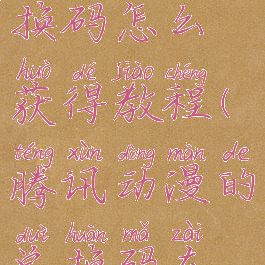 换码怎么
huò dé jiào chéng
获得教程(
téng xùn dòng màn de
腾讯动漫的
duì huàn mǎ zài
兑换码在